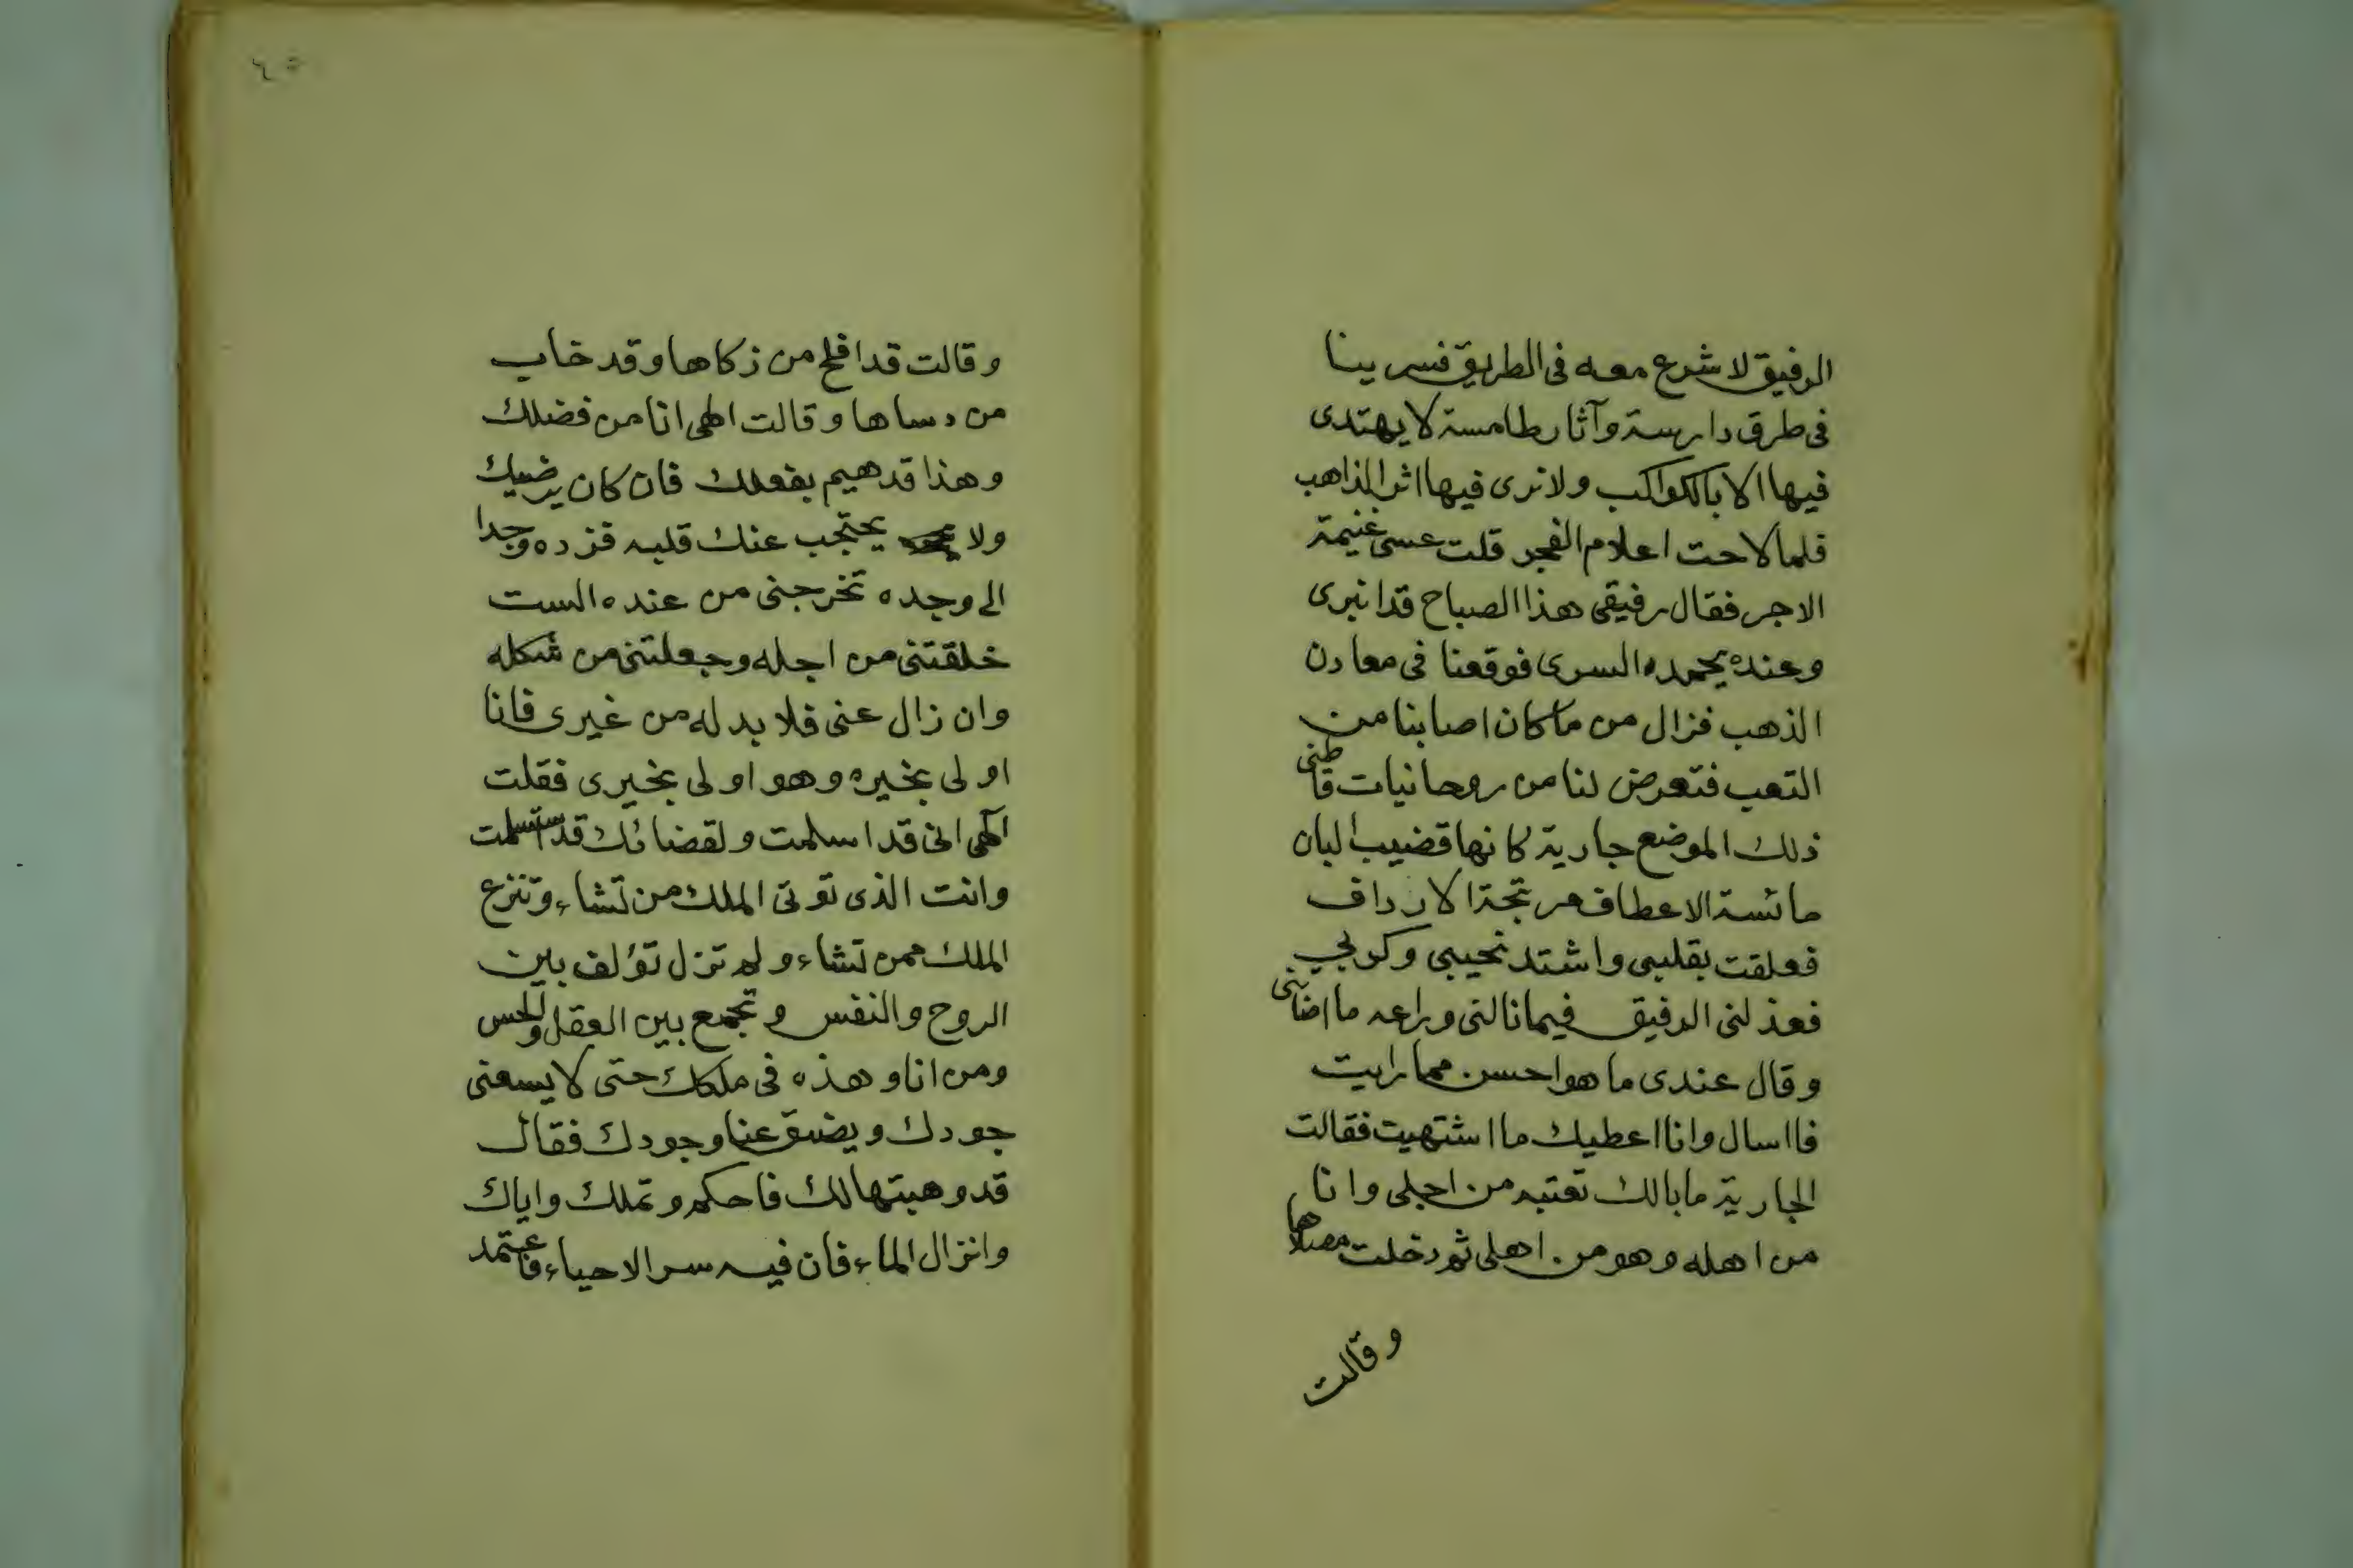 الرفيق لاشرع معه فى الطريق فسر بنا
فى طرق دارسة وآثار طامسة لا يهتدى
فيها الا بالكواكب ولا نرى فيها اثر الذاهب
فلما لاحت اعلام الفجر قلت عسى غنيمة
الاجر فقال رفيقى هذا الصباح قد انبرى
وعنده يحمده السرى فوقعنا فى معادن
الذهب فزال من ما كان اصابنا من
التعب فتعرض لنا من روحانيات قاطنى
ذلك الموضع جارية كانها قضيب البان
مائسة الاعطاف مرتجة الارداف
فعلقت بقلبى واشتد نحيبى وكربى
فعذلنى الرفيق فيما نالنى وراعه ما اضنانى
وقال عندى ما هو احسن مما رايت
فااسال وانا اعطيك ما اشتهيت فقالت
الجارية ما بالك تعتبه من اجلى وانا
من اهله وهو من اهلى ثم دخلت مصلاها
وقالت
٦٥
وقالت قد افلح من زكاها وقد خاب
من دساها وقالت الهى انا من فضلك
وهذا قد هيم بفعلك فان كان يرضيك
ولا يحتجب عنك قلبه فزده وجدا
الى وجده تخرجنى من عنده الست
خلقتنى من اجله وجعلتنى من شكله
وان زال عنى فلا بد له من غيرى فانا
اولى بخيره وهو اولى بخيرى فقلت
الهى انى قد اسلمت ولقضائك قد استسلمت
وانت الذى تؤتى الملك من تشاء وتنزع
الملك ممن تشاء ولم تزل تؤلف بين
الروح والنفس وتجمع بين العقل والحس
ومن انا وهذه فى ملكك حتى لا يسعنى
جودك ويضيق عنا وجودك فقال
قد وهبتها لك فاحكم وتملك واياك
وانزال الماء فان فيه سر الاحياء فاعتمد